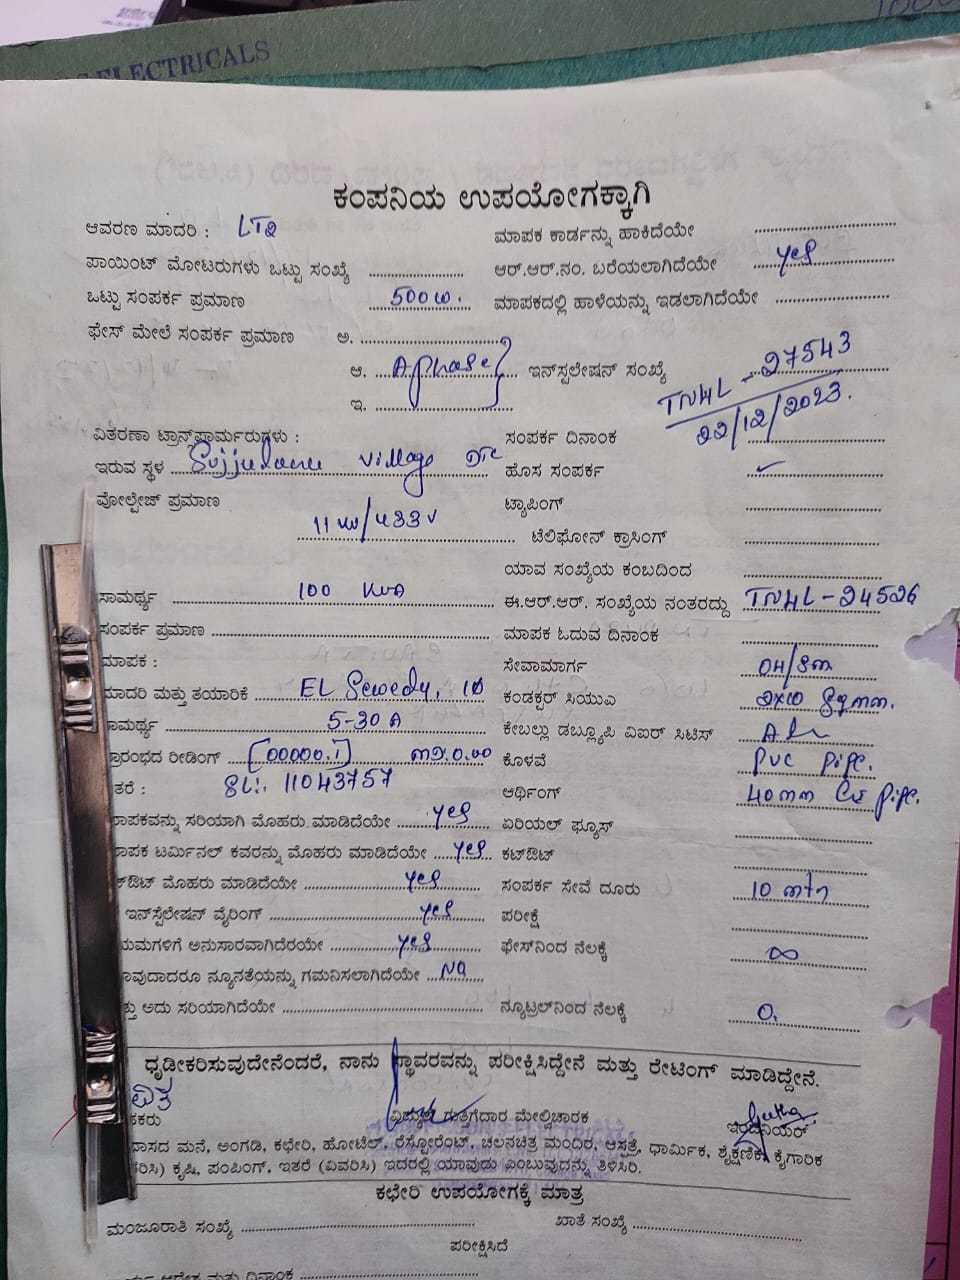 ELECTRICALS
ಕಂಪನಿಯ ಉಪಯೋಗಕ್ಕಾಗಿ
ಆವರಣ ಮಾದರಿ : LT2 ಮಾಪಕ ಕಾರ್ಡನ್ನು ಹಾಕಿದೆಯೇ
ಪಾಯಿಂಟ್ ಮೋಟರುಗಳು ಒಟ್ಟು ಸಂಖ್ಯೆ ಆರ್.ಆರ್.ನಂ. ಬರೆಯಲಾಗಿದೆಯೇ yes
ಒಟ್ಟು ಸಂಪರ್ಕ ಪ್ರಮಾಣ 500 W. ಮಾಪಕದಲ್ಲಿ ಹಾಳೆಯನ್ನು ಇಡಲಾಗಿದೆಯೇ
ಫೇಸ್ ಮೇಲೆ ಸಂಪರ್ಕ ಪ್ರಮಾಣ ಅ.
ಆ. A phase } ಇನ್‌ಸ್ಪಲೇಷನ್ ಸಂಖ್ಯೆ TN4L - 27543
ಇ. 22/12/2023.
ವಿತರಣಾ ಟ್ರಾನ್ಸ್‌ಫಾರ್ಮರುಗಳು : ಸಂಪರ್ಕ ದಿನಾಂಕ
ಇರುವ ಸ್ಥಳ village ಹೊಸ ಸಂಪರ್ಕ ✓
ವೋಲ್ಟೇಜ್ ಪ್ರಮಾಣ 11 kv/433 v ಟ್ಯಾಪಿಂಗ್
ಟೆಲಿಫೋನ್ ಕ್ರಾಸಿಂಗ್
ಯಾವ ಸಂಖ್ಯೆಯ ಕಂಬದಿಂದ
ಸಾಮರ್ಥ್ಯ 100 KVA ಈ.ಆರ್.ಆರ್. ಸಂಖ್ಯೆಯ ನಂತರದ್ದು TN4L - 24526
ಸಂಪರ್ಕ ಪ್ರಮಾಣ ಮಾಪಕ ಓದುವ ದಿನಾಂಕ
ಮಾಪಕ : ಸೇವಾಮಾರ್ಗ OH/Sm
ಮಾದರಿ ಮತ್ತು ತಯಾರಿಕೆ EL Sewedy, 1Ø ಕಂಡಕ್ಟರ್ ಸಿಯುಎ 2x10 Sqmm.
ಸಾಮರ್ಥ್ಯ 5-30 A ಕೇಬಲ್ಲು ಡಬ್ಲ್ಯೂಪಿ ವಿಐರ್ ಸಿಟಿಸ್
ಪ್ರಾರಂಭದ ರೀಡಿಂಗ್ [00000.1] ಕೊಳವೆ PVC pipe.
ಇತರೆ : SL:. 11043757 ಆರ್ಥಿಂಗ್ 40mm pipe.
ಮಾಪಕವನ್ನು ಸರಿಯಾಗಿ ಮೊಹರು ಮಾಡಿದೆಯೇ yes ಏರಿಯಲ್ ಫ್ಯೂಸ್
ಮಾಪಕ ಟರ್ಮಿನಲ್ ಕವರನ್ನು ಮೊಹರು ಮಾಡಿದೆಯೇ yes ಕಟ್‌ಔಟ್
ಕಟ್‌ಔಟ್ ಮೊಹರು ಮಾಡಿದೆಯೇ yes ಸಂಪರ್ಕ ಸೇವೆ ದೂರು 10 mtr
ಇನ್‌ಸ್ಪೆಲೇಷನ್ ವೈರಿಂಗ್ yes ಪರೀಕ್ಷೆ
ನಿಯಮಗಳಿಗೆ ಅನುಸಾರವಾಗಿದೆರಯೇ yes ಫೇಸ್‌ನಿಂದ ನೆಲಕ್ಕೆ ∞
ಯಾವುದಾದರೂ ನ್ಯೂನತೆಯನ್ನು ಗಮನಿಸಲಾಗಿದೆಯೇ No
ಮತ್ತು ಅದು ಸರಿಯಾಗಿದೆಯೇ ನ್ಯೂಟ್ರಲ್‌ನಿಂದ ನೆಲಕ್ಕೆ 0.
ಧೃಡೀಕರಿಸುವುದೇನೆಂದರೆ, ನಾನು ಸ್ಥಾವರವನ್ನು ಪರೀಕ್ಷಿಸಿದ್ದೇನೆ ಮತ್ತು ರೇಟಿಂಗ್ ಮಾಡಿದ್ದೇನೆ.
ವಿದ್ಯುತ್ ಗುತ್ತಿಗೆದಾರ ಮೇಲ್ವಿಚಾರಕ ಇಂಜಿನಿಯರ್
ವಾಸದ ಮನೆ, ಅಂಗಡಿ, ಕಛೇರಿ, ಹೋಟೆಲ್, ರೆಸ್ಟೋರೆಂಟ್, ಚಲನಚಿತ್ರ ಮಂದಿರ, ಆಸ್ಪತ್ರೆ, ಧಾರ್ಮಿಕ, ಶೈಕ್ಷಣಿಕ, ಕೈಗಾರಿಕ
ಕೃಷಿ, ಪಂಪಿಂಗ್, ಇತರೆ (ವಿವರಿಸಿ) ಇದರಲ್ಲಿ ಯಾವುದು ಎಂಬುವುದನ್ನು ತಿಳಿಸಿರಿ.
ಕಛೇರಿ ಉಪಯೋಗಕ್ಕೆ ಮಾತ್ರ
ಮಂಜೂರಾತಿ ಸಂಖ್ಯೆ ಖಾತೆ ಸಂಖ್ಯೆ
ಪರೀಕ್ಷಿಸಿದೆ